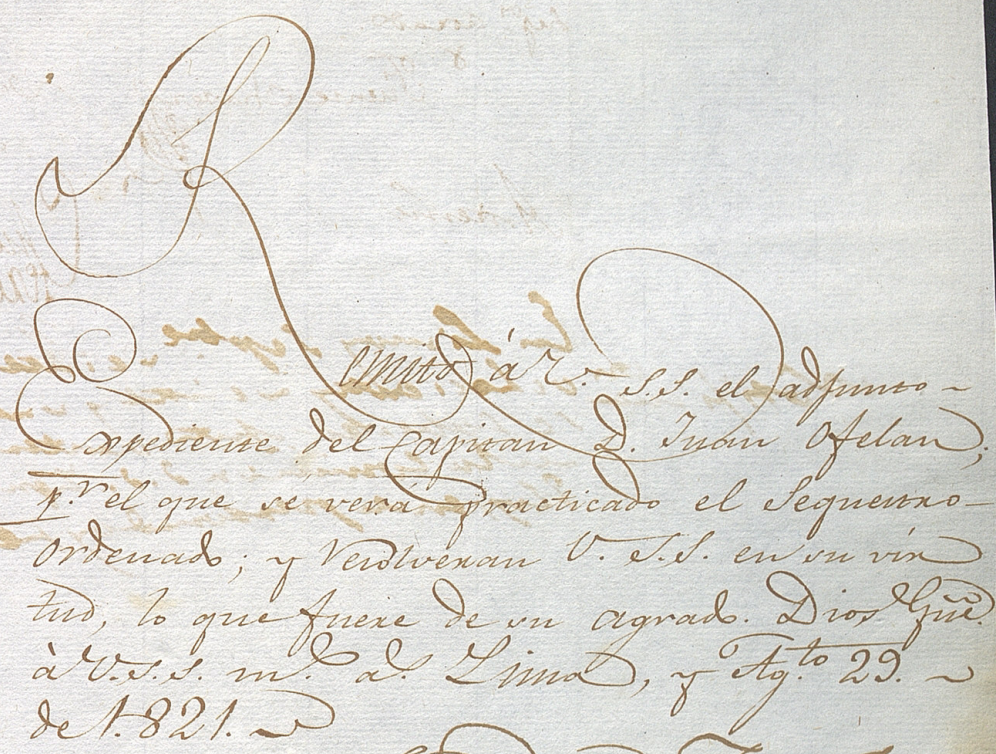 Remito á V. S.S. el adjunto-
Expediente del Capitan D. Juan Ofelan;
p.r el que se verá practicado el Sequestro-
Ordenado; y resolveran V. S.S. en su vir
tud, lo que fuere de su agrado. Dios Gūe.
à V.S.S. m.s a.s Lima, y Ag.to 29.
de 1.821.